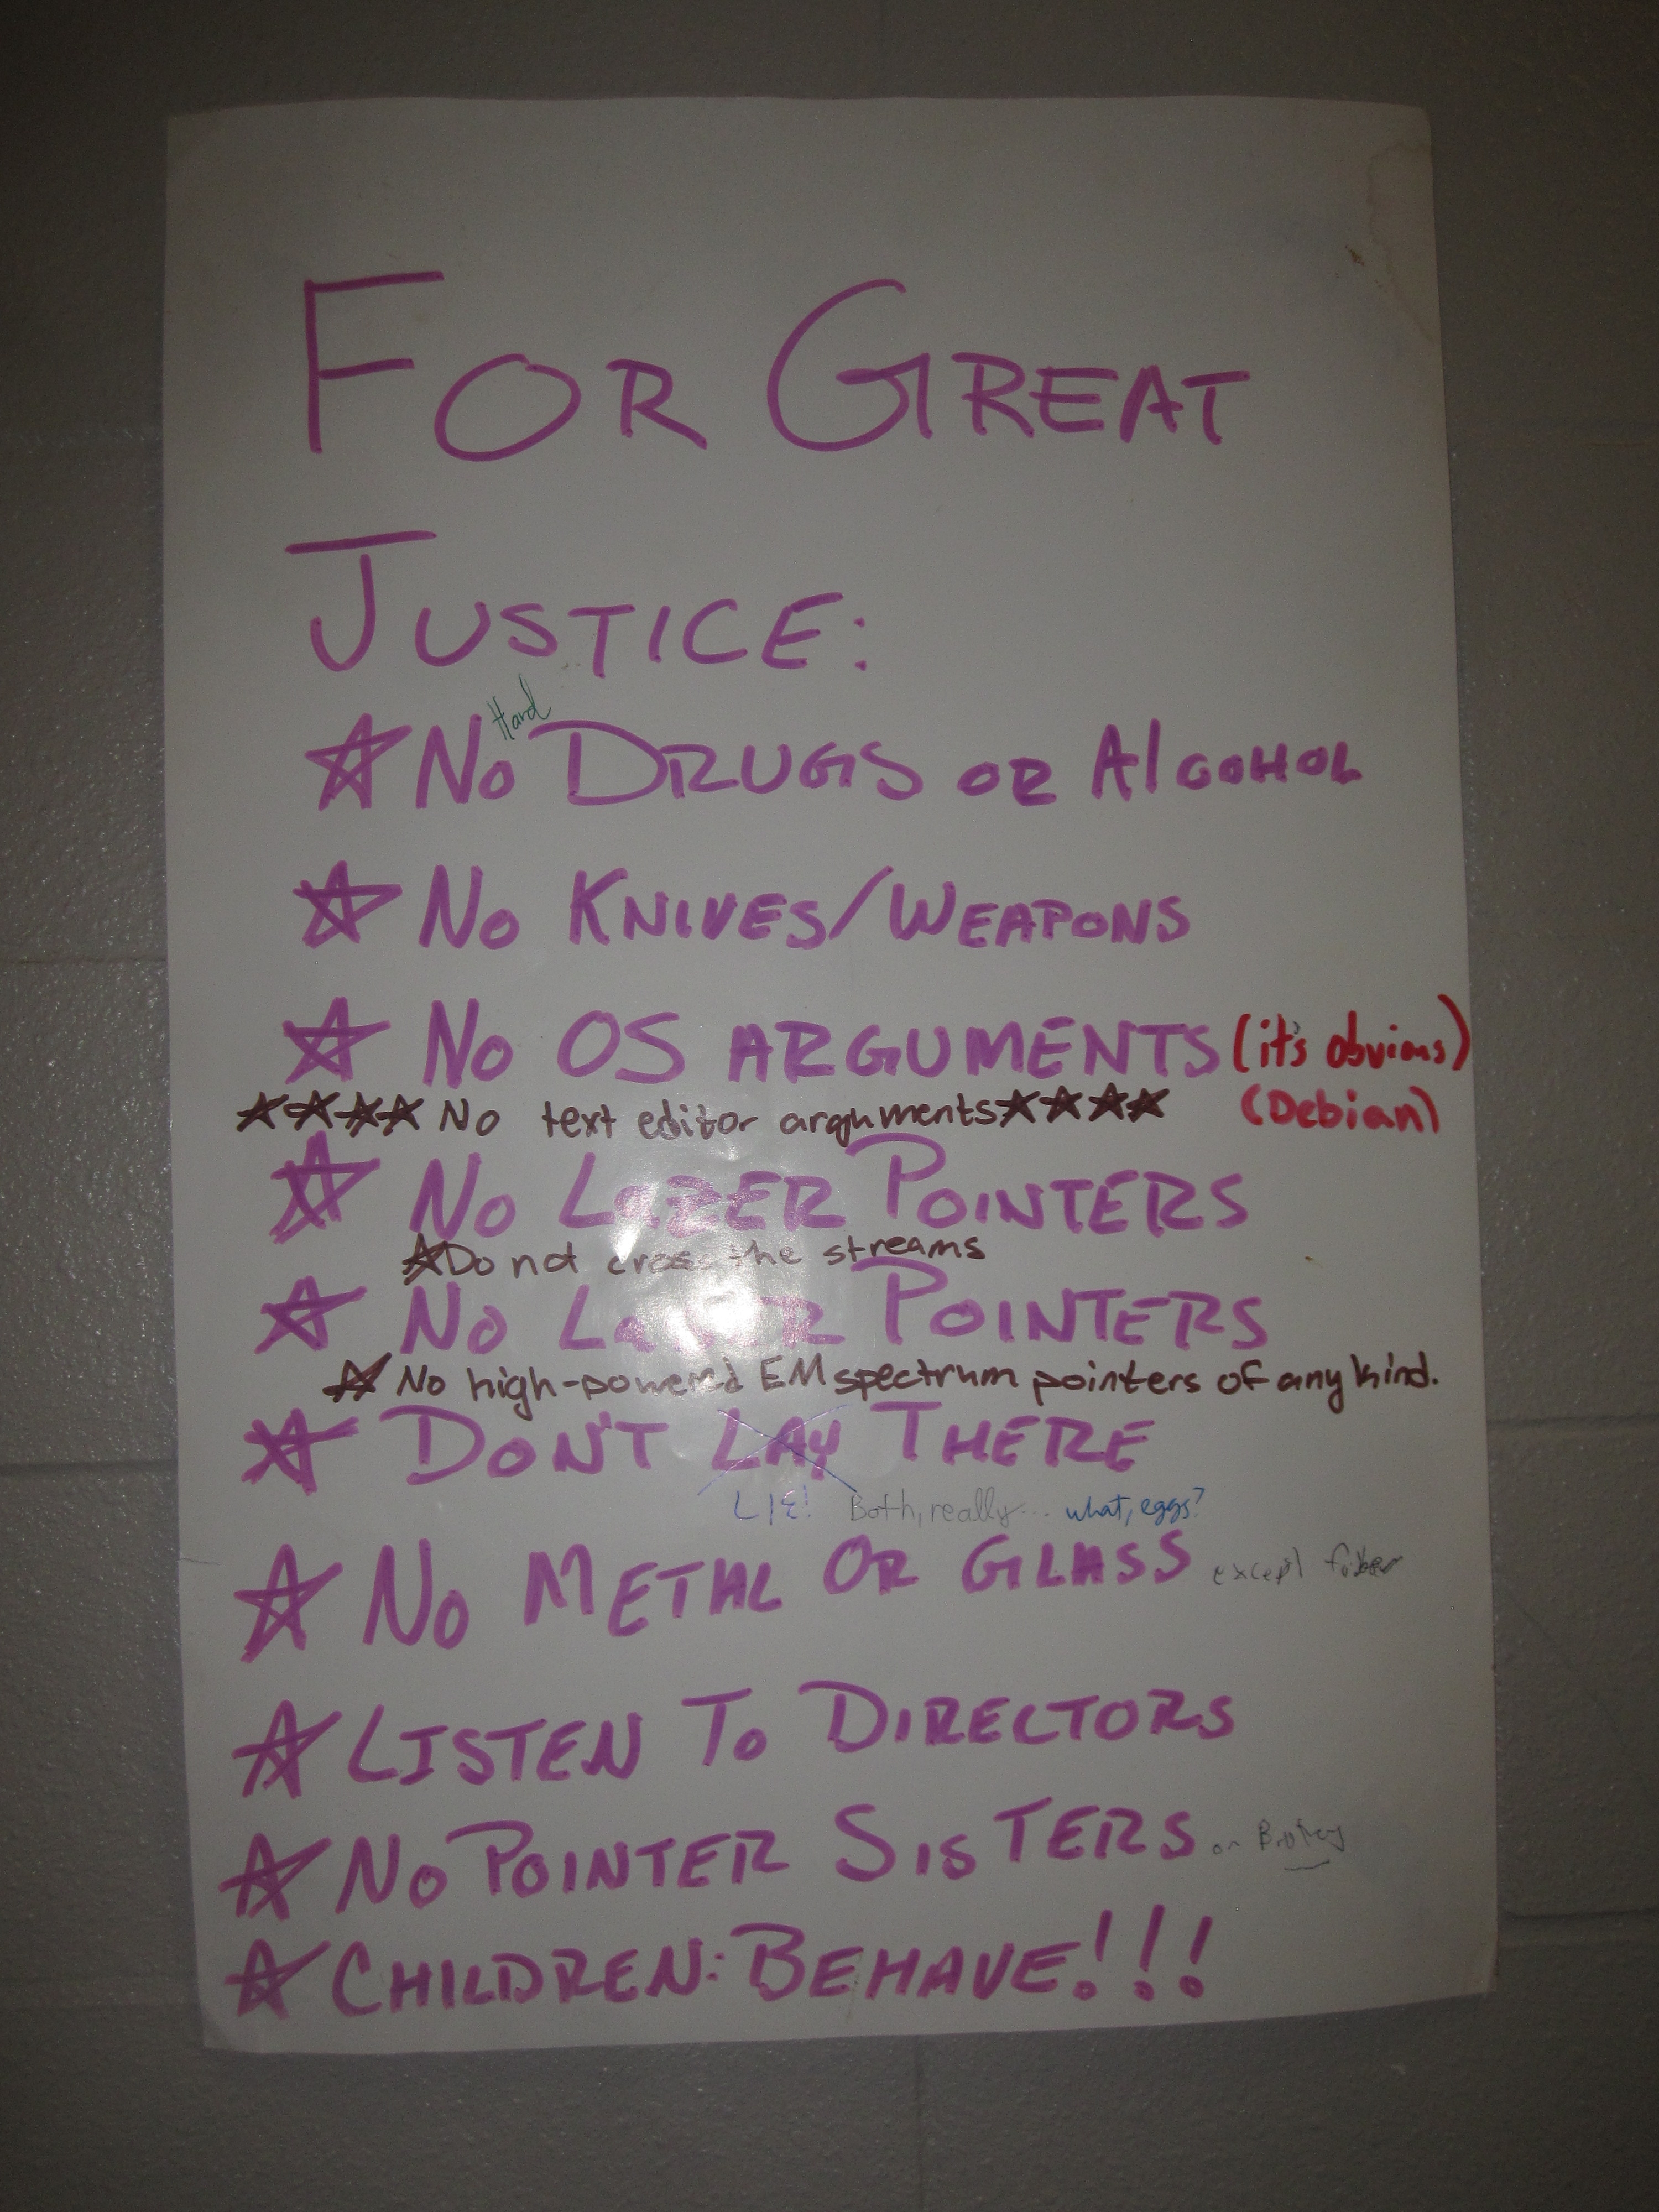 FOR GREAT
JUSTICE:
Hard
☆ NO DRUGS OR ALCOHOL
☆ NO KNIVES/WEAPONS
☆ NO OS ARGUMENTS (it's obvious)
☆☆☆☆ No text editor arguments ☆☆☆☆ (Debian)
☆ NO LAZER POINTERS
☆ Do not cross the streams
☆ NO POINTERS
☆ No high-powered EM spectrum pointers of any kind.
☆ DON'T LAY THERE
LIE! Both, really... what, eggs?
☆ NO METAL OR GLASS except fiber
☆ LISTEN TO DIRECTORS
☆ NO POINTER SISTERS or
☆ CHILDREN: BEHAVE!!!